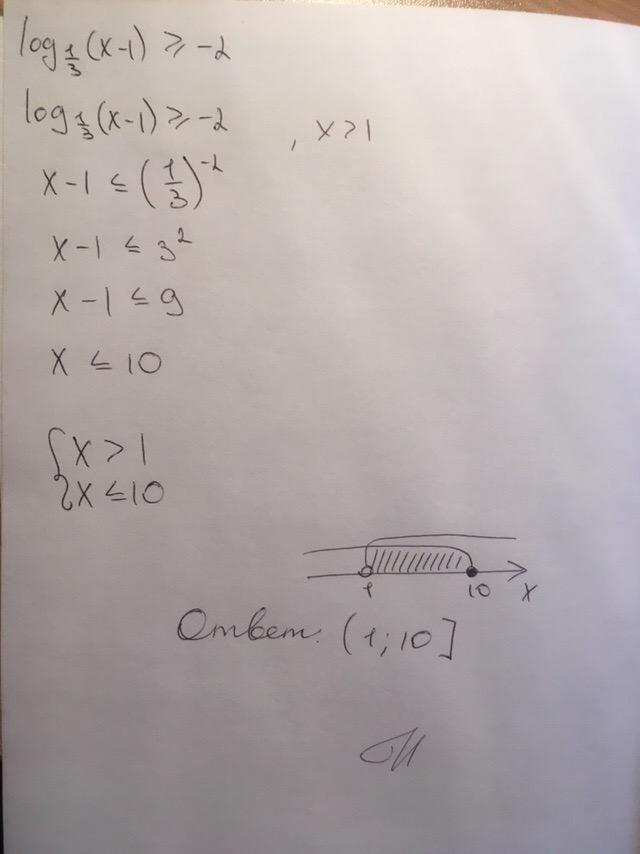 log_{1/3}(x-1) ⩾ -2
log_{1/3}(x-1) ⩾ -2 , x>1
x-1 ≤ (1/3)^{-2}
x-1 ≤ 3^2
x-1 ≤ 9
x ≤ 10
{x > 1
x ≤ 10
1 10 x
Ответ: (1; 10]